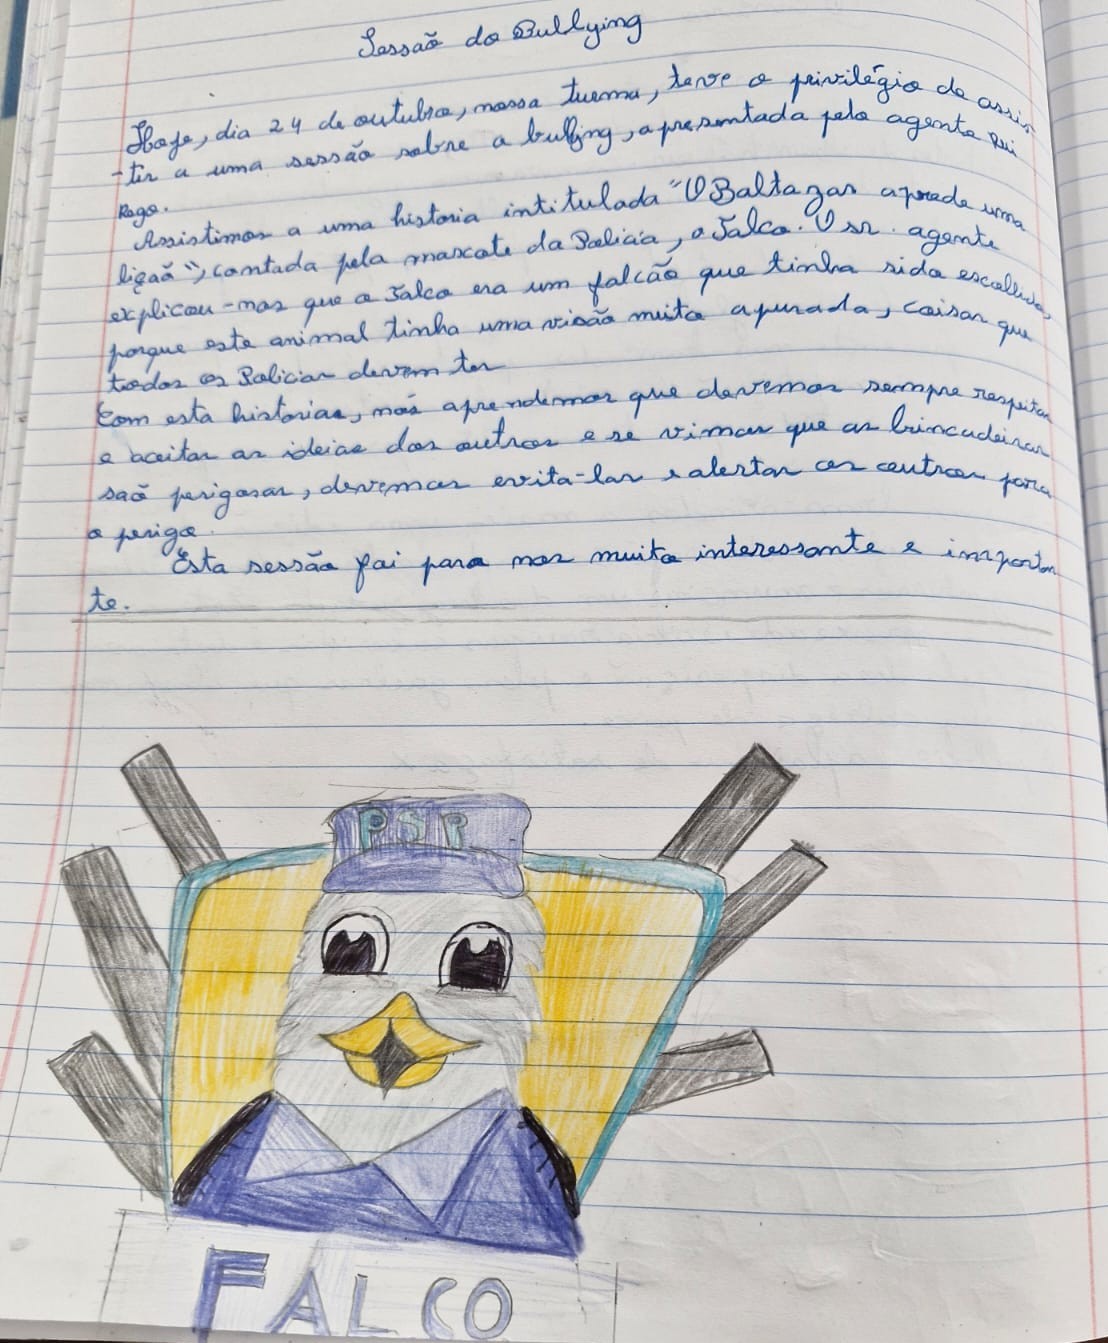 Sessaõ do Bullying
Hoje, dia 24 de outubro, nossa turma, teve o privilégio de assis
-tir a uma sessão sobre o bulling, apresentada pelo agente Rui
Rogo.
Assistimos a uma historia intitulada "O Baltazar aprede uma
liçaõ", contada pela mascote da Policia, o Falco. O sr. agente
explicou-mos que o Falco era um falcão que tinha sido escolhido
porque este animal tinha uma visão muito apurada, coisas que
todos os Policias devem ter
Com esta historias, nós aprendemos que devemos sempre respeitar
e aceitar as ideias dos outros e se vimos que as brincadeiras
saõ perigosas, devemos evita-las e alertar os outros para
o perigo.
Esta sessão foi para nos muito interessante e importan
te.
PSP
FALCO